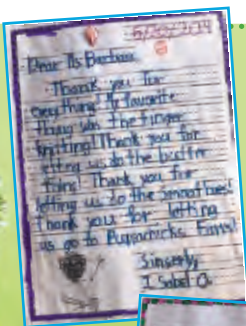 Dear Ms Barbara
Thank you for
everything! My favorite
thing was the finger
knitting! Thank you for
letting us do the butter
Thank you for
letting us do the smoothies!
Thank you for letting
us go to Farm!
Sincerely,
Isabel O.